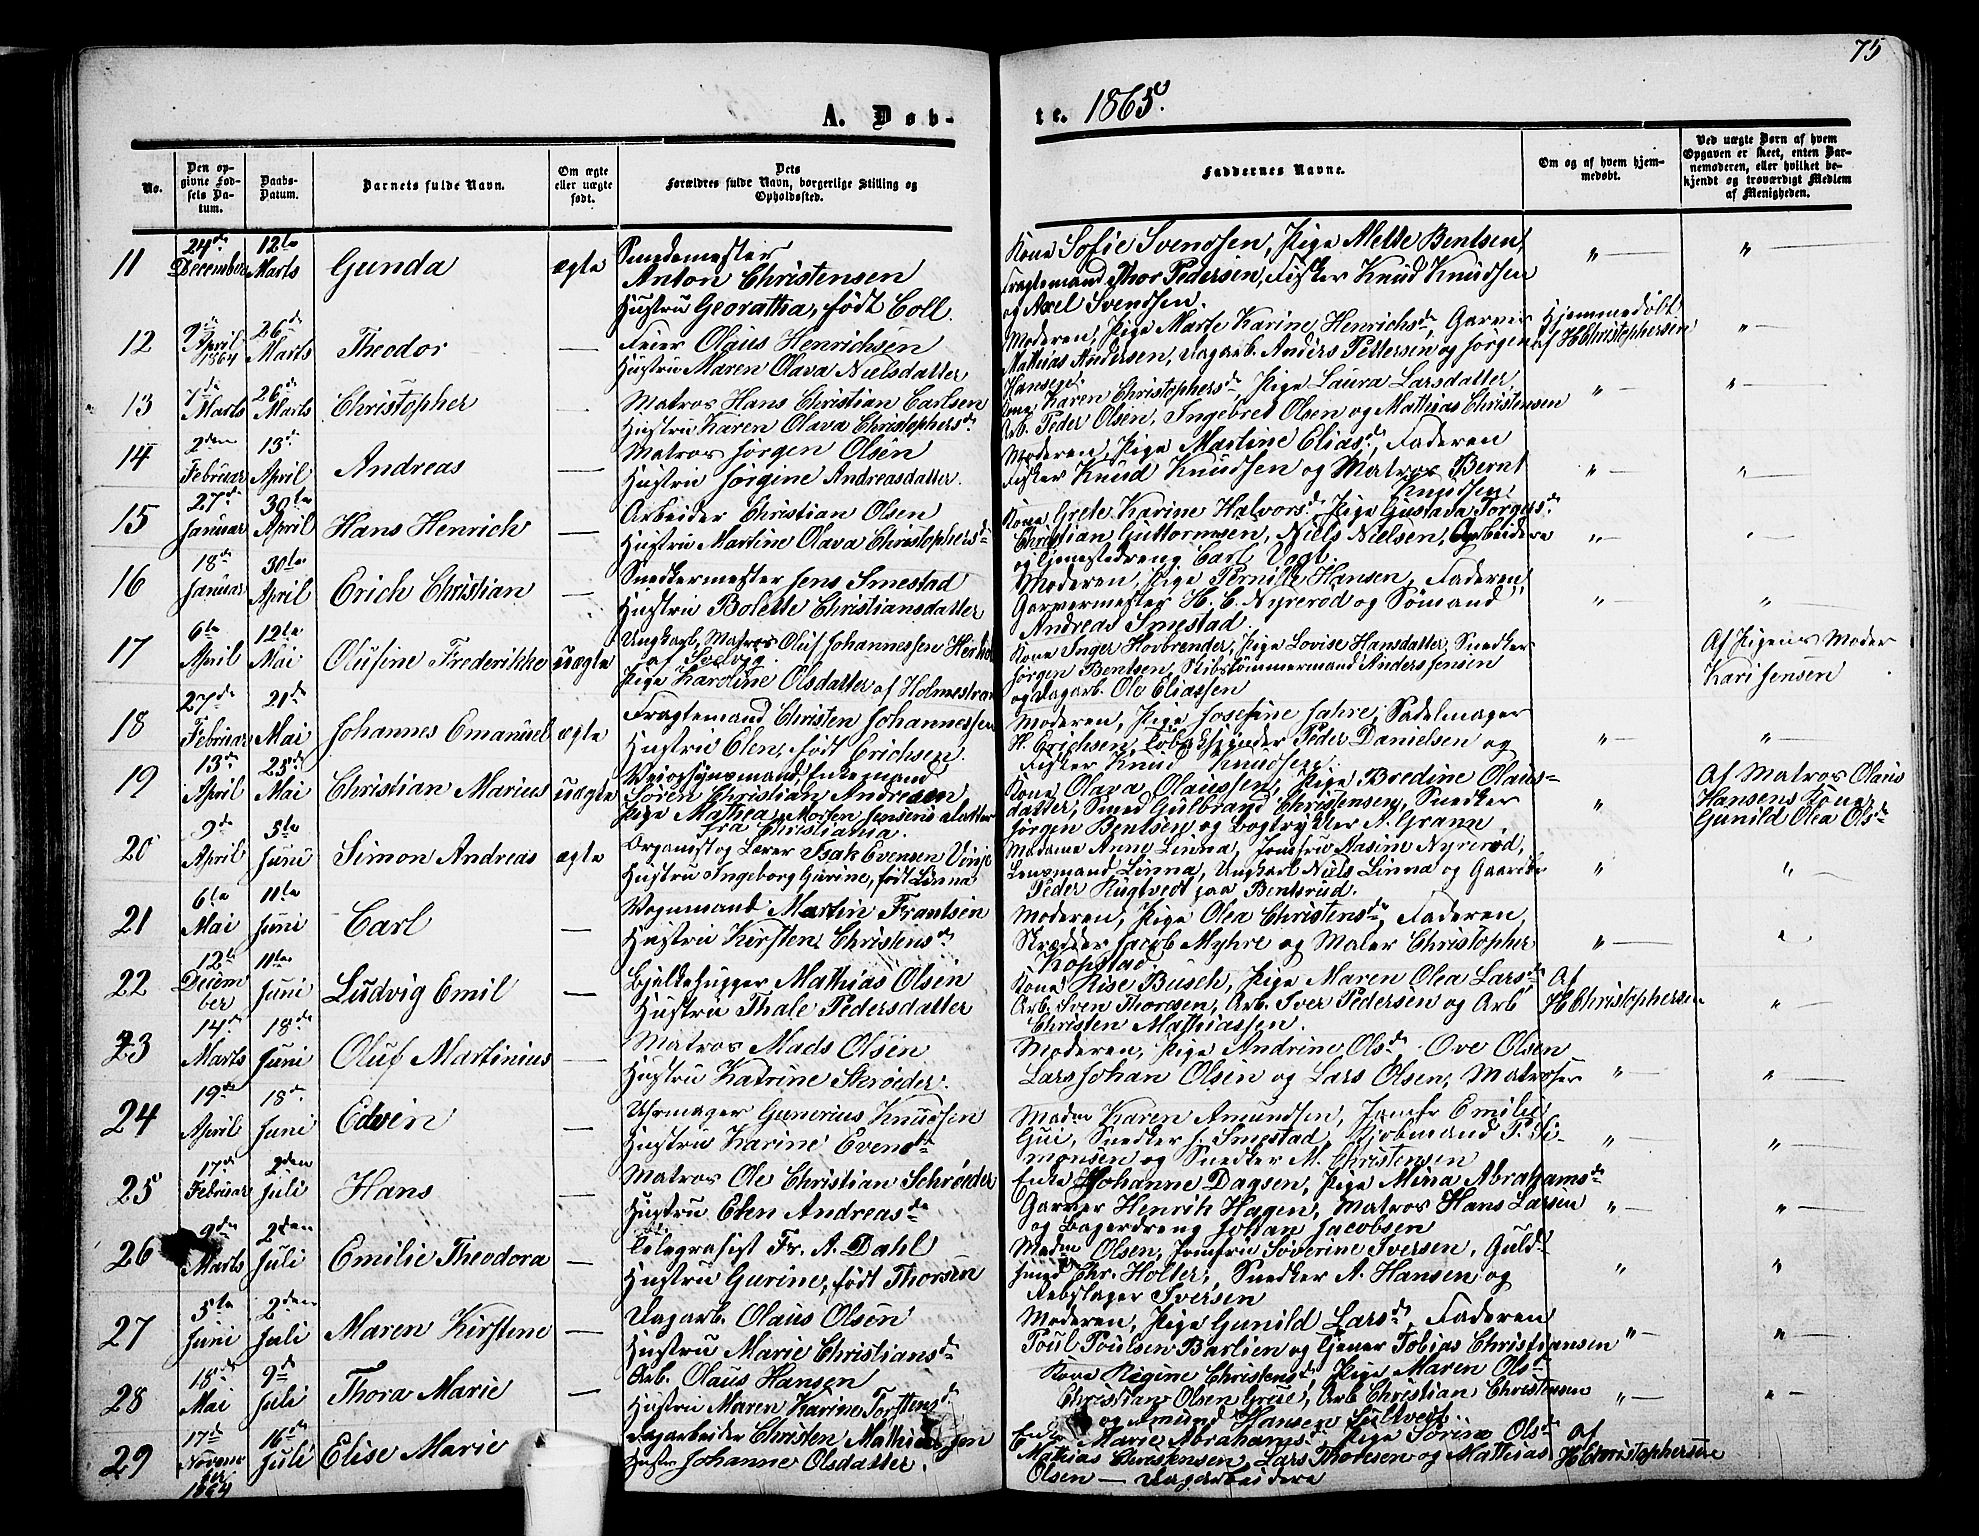 75
A. Døb-
te. 1865.
No.
Den op-
givne Fød-
sels Da-
tum.
Daabs-
Datum.
Barnets fulde Navn.
Om ægte
eller uægte
født.
Dets
Forældres fulde Navn, borgerlige Stilling og
Opholdssted.
Faddernes Navne.
Om og af hvem hjem-
medøbt.
Ved uægte Børn af hvem
Opgaven er skeet, enten Bar-
nemoderen, eller hvilket be-
kjendt og troværdigt Medlem
af Menigheden.
11 24de December 12te Marts Gunda ægte
Smedemester
Anton Christensen
Hustru Georatha, født Coll.
Kone Sofie Svendsen, Pige Mette Bentsen
Fragtemand Thor Pedersen, Fisker Knud Knudsen
og Axel Svendsen.
" "
12 9de April 1864 26de Marts Theodor —
Feier Olaus Henrichsen
Hustru Maren Olava Nielsdatter
Moderen, Pige Marte Karine Henrichsd., Garver
Mathias Andersen, Dagarb. Anders Pettersen og Jørgen
Hansen.
Hjemmedøbt
af H Christophersen
"
13 7de Marts 26de Marts Christopher —
Matros Hans Christian Carlsen
Hustru Karen Olava Christophersd.
Kone Karen Christophersd. Pige Laura Larsdatter,
Arb. Peder Olsen, Ingebret Olsen og Mathias Christensen
" "
14 2den Februar 13de April Andreas —
Matros Jørgen Olsen
Hustru Jørgine Andreasdatter.
Moderen, Pige Martine Eliasd., Faderen
Fisker Knud Knudsen og Matros Bernt
Knudsen.
" "
15 27de Januar 30te April Hans Henrich —
Arbeider Christian Olsen
Hustru Martine Olava Christophersd.
Kone Grete Karine Halvorsd. Pige Gustava Torgersd.
Christian Guttormsen, Niels Nielsen, Arbeidere
og Tjenestedreng Carl Vogt.
" "
16 18de Januar 30te April Erich Christian —
Snedkermester Jens Smestad
Hustru Bolette Christiansdatter
Moderen, Pige Pernille Hansen, Faderen
Garvermester H. C. Nyrerød og Sømand
Andreas Smestad.
" "
17 6te April 12te Mai Olusine Frederikke uægte
Ungkarl, Matros Oluf Johannessen
af Selvig
Pige Karoline Olsdatter af Holmestrand
Kone Inger Hovbrender, Pige Lovise Hansdatter, Snedker
Jørgen Bentsen, Skibstømmermand Anders Jensen
og Dagarb. Ole Eliassen
Af Pigens Moder
Kari Jensen
18 27de Februar 21de Mai Johannes Emanuel ægte
Fragtemand Christen Johannessen
Hustru Elen, født Erichsen.
Moderen, Pige Josefine Jahre, Sadelmager
H. Erichsen, Tobakspinder Peder Danielsen og
Fisker Knud Knudsen.
" "
19 13de April 25de Mai Christian Marius uægte
Veiopsynsmand, Enkemand
Søren Christian Andresen
Pige Mathea Morten Jenseris datter
fra Christiania.
Kone Olava Olaussen, Pige Bredine Olaus-
datter, Smed Gulbrand Christensen, Snedker
Jørgen Bentsen og Bogtrykker A. Grann.
"
Af Matros Olaus
Hansens Kone
Gunild Olea Olsd.
20 9de April 5te Juni Simon Andreas ægte
Organist og Lærer Isak Evensen Vinje
Hustru Ingeborg Gurine, født Linna
Madame Anne Linna, Jomfru Aasine Nyrerød,
Lensmand Linna, Ungkarl Niels Linna og Gaardbr.
Peder Rugtvedt paa Bentsrud.
" "
21 6te Mai 11te Juni Carl —
Vognmand Martin Frantsen
Hustru Kirsten Christensd.
Moderen, Pige Olea Christensd., Faderen,
Skrædder Jacob Myhre og Maler Christopher
Kopstad.
" "
22 12te December 11te Juni Ludvig Emil —
Bjelkehugger Mathias Olsen
Hustru Thale Pedersdatter
Kone Rise Busch, Pige Maren Olea Larsd.
Arb. Sven Thoresen, Arb. Iver Pedersen og Arb
Christen Mathiassen.
Af
H Christophersen
"
23 14de Marts 18de Juni Oluf Martinius —
Matros Mads Olsen
Hustru Katrine Skrøeder.
Moderen, Pige Andrine Olsd. Ove Olsen
Lars Johan Olsen og Lars Olsen, Matroser
" "
24 19de April 18de Juni Edvin —
Uhrmager Gunerius Knudsen
Hustru Karine Evensd.
Madm Karen Amundsen, Jomfr Emilie
Gui, Snedker J. Smestad, Kjøbmand P. Si-
monsen og Snedker M. Christensen
" "
25 17de Februar 2den Juli Hans —
Matros Ole Christian Schrøeder
Hustru Elen Andreasd.
Enke Johanne Dagsen, Pige Mina Abrahamsd.
Garver Henrik Hagen, Matros Hans Larsen
og Bagerdreng Johan Jacobsen
" "
26 9de Marts 2den Juli Emilie Theodora —
Telegrafist Fr. A. Dahl
Hustru Gurine, født Thorsen
Madm Olsen, Jomfru Severine Iversen, Guld-
smed Chr. Holter, Snedker A. Hansen og
Rebslager Iversen
" "
27 5te Juni 2den Juli Maren Kirstene —
Dagarb. Olaus Olsen
Hustru Marie Christiansd.
Moderen, Pige Gunild Larsd., Faderen
Poul Poulsen Barlien og Tjener Tobias Christiansen
" "
28 18de Mai 9de Juli Thora Marie —
Arb. Olaus Hansen
Hustru Maren Karine Torstensd.
Kone Regine Christensd., Pige Maren Olsd.
Christian Olsen Grue, Arb Christian Christensen
og Amund Hansen Sultvedt.
" "
29 17de November 1864 16te Juli Elise Marie
Dagarbeider Christen Mathiassen
Hustr Johanne Olsdatter.
Enke Marie Abrahamsd. Pige Sørine Olsd.
Mathias Christensen, Lars Thoresen og Mathias
Olsen — Dagarbeidere
Af
H Christophersen